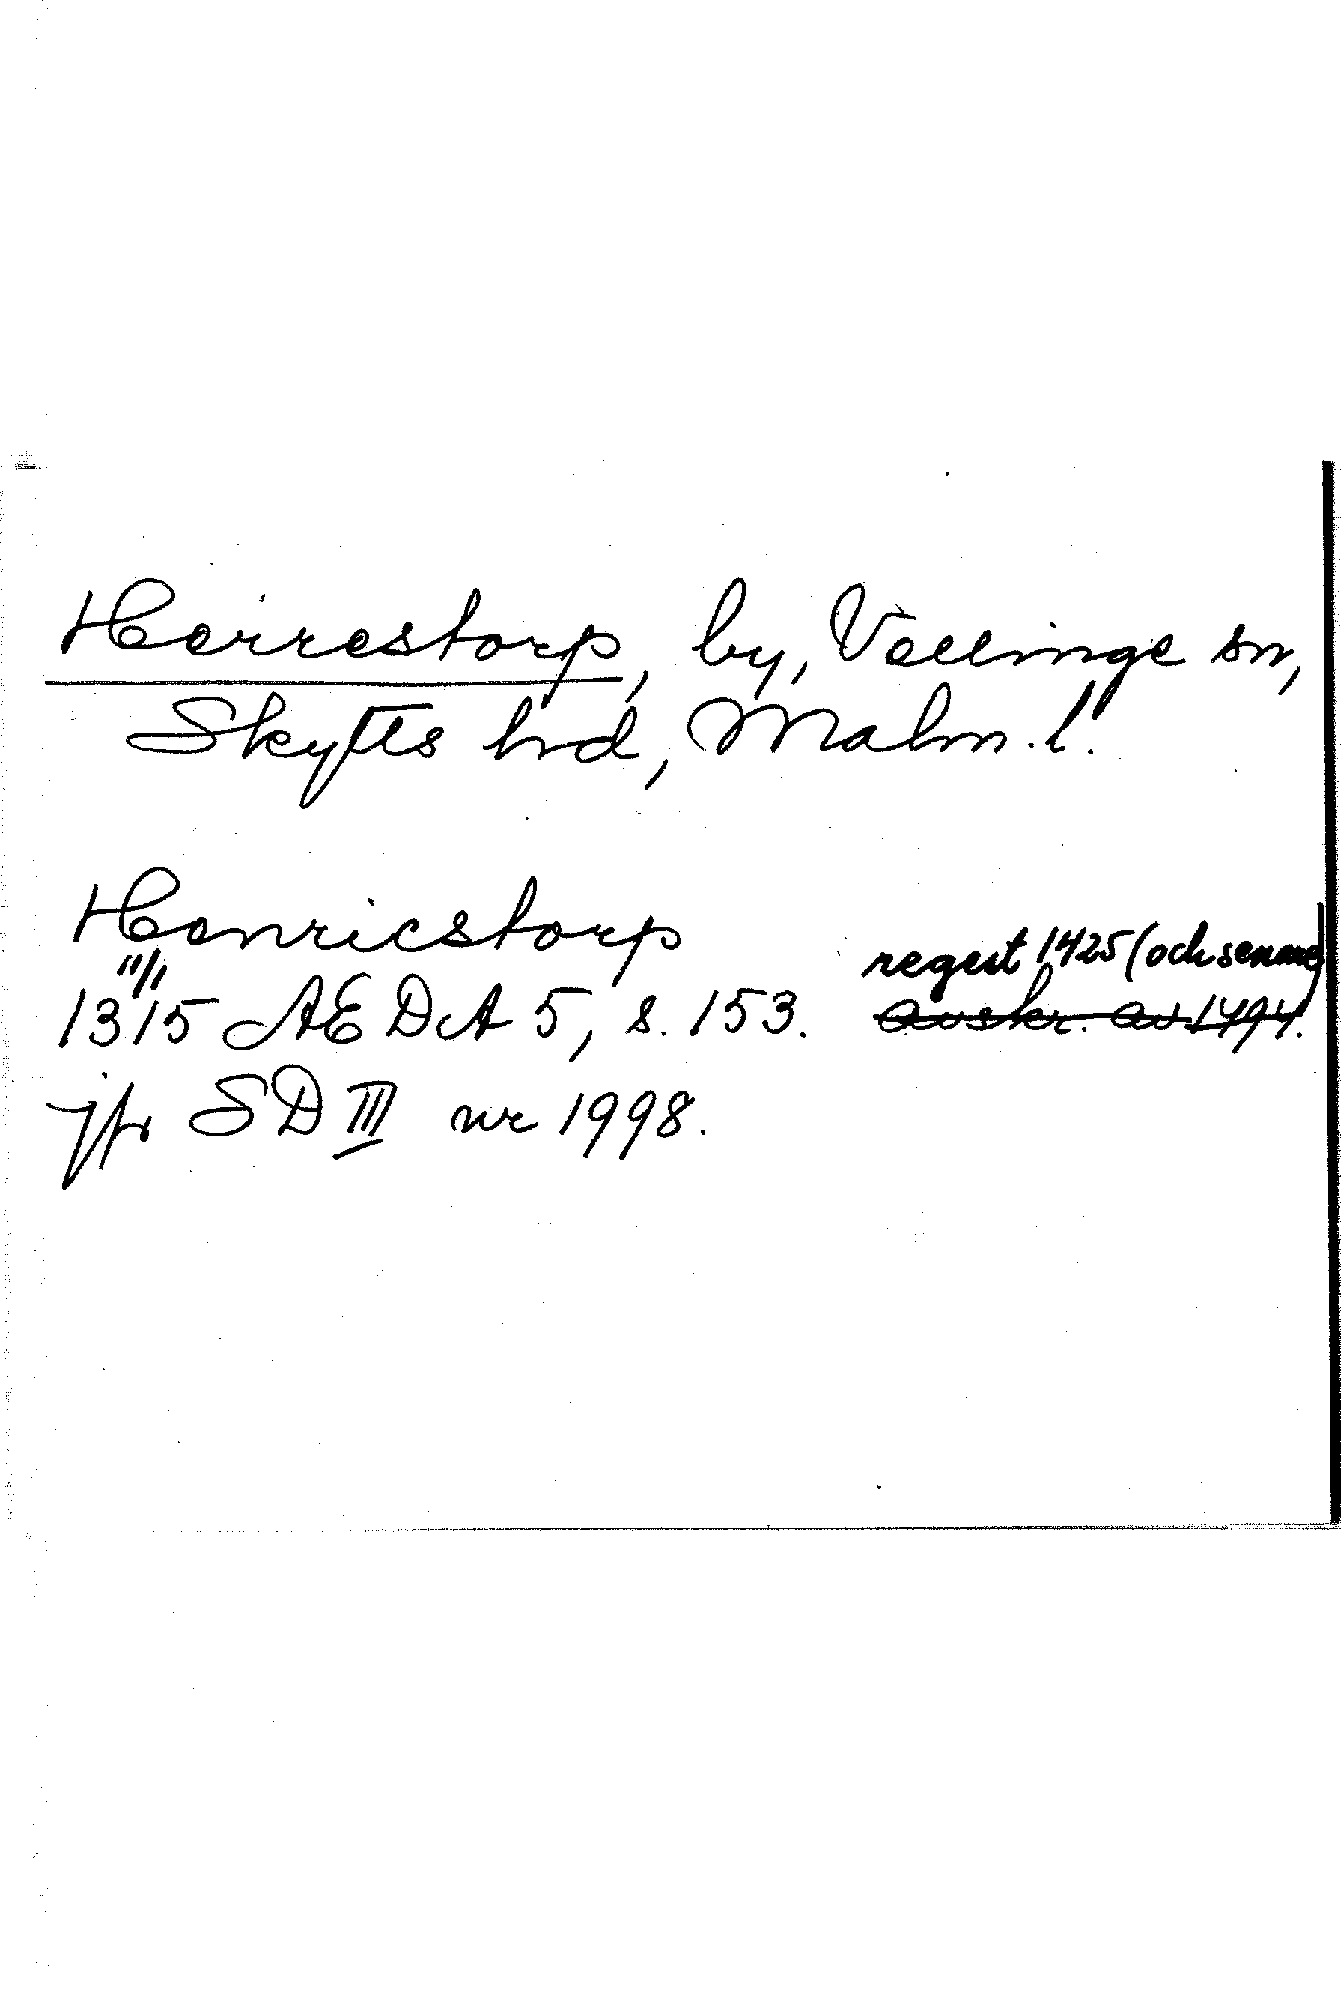 Herrestorp, by, Vellinge sn,
Skytts hd, Malm. l.
Henricstorp
11/1
1315 AEDA 5, s. 153. regest 1425 (och senare)
avskr. av 1494.
jfr SD III nr 1998.